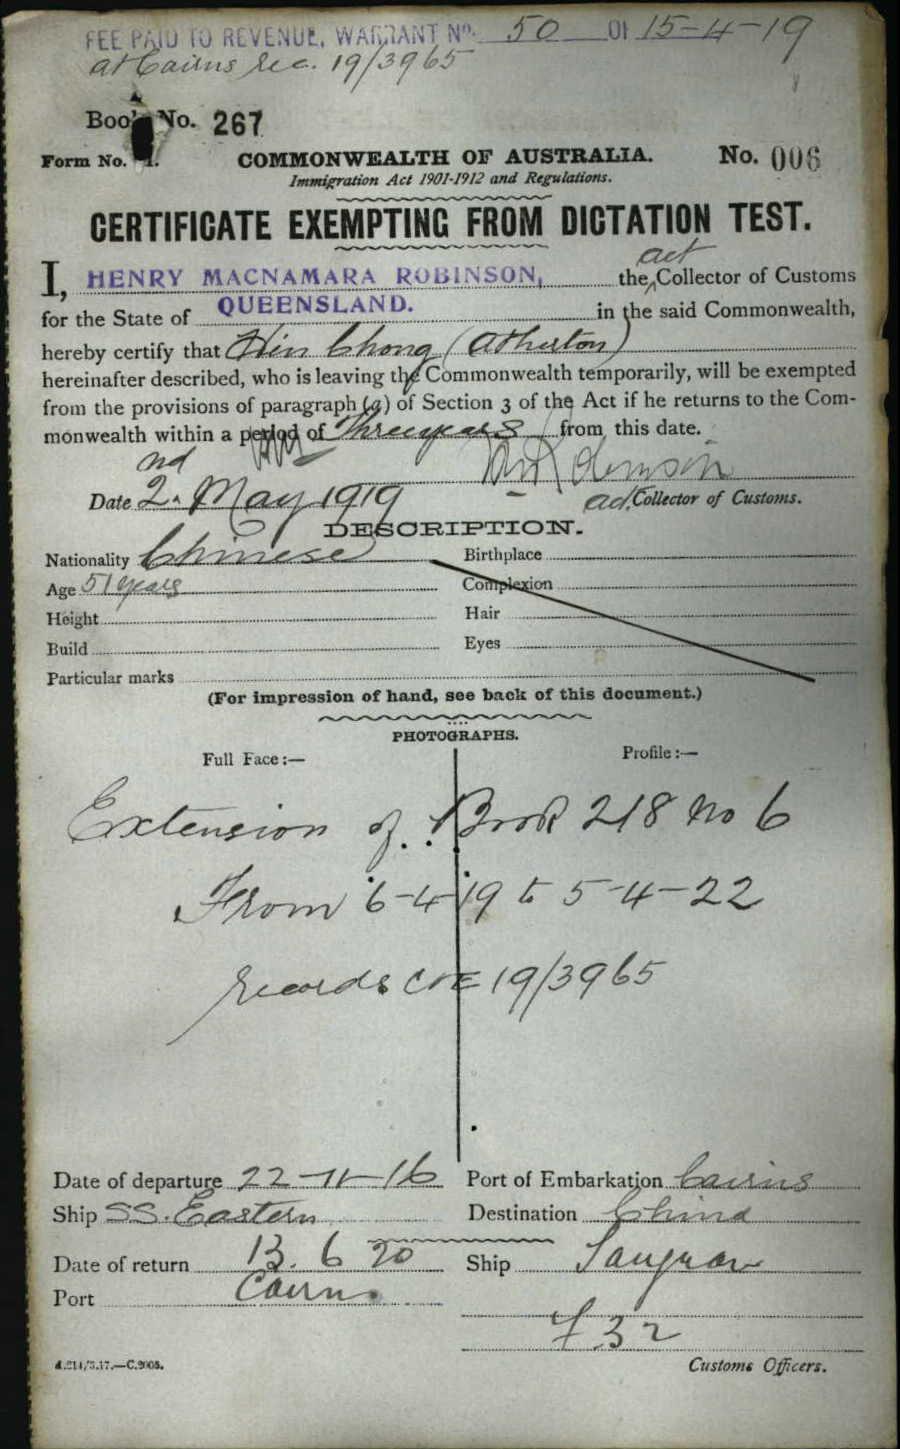 FEE PAID TO REVENUE, WARRANT No. 50 OF 15-4-19
at Cairns Rec. 19/3965
Book No. 267
Form No. 1.
COMMONWEALTH OF AUSTRALIA.
No. 006
Immigration Act 1901-1912 and Regulations.
CERTIFICATE EXEMPTING FROM DICTATION TEST.
I, HENRY MACNAMARA ROBINSON, the act Collector of Customs
for the State of QUEENSLAND. in the said Commonwealth,
hereby certify that Hin Chong (Atherton)
hereinafter described, who is leaving the Commonwealth temporarily, will be exempted
from the provisions of paragraph (a) of Section 3 of the Act if he returns to the Com-
monwealth within a period of Three years from this date.
Date 2nd May 1919
act. Collector of Customs.
DESCRIPTION.
Nationality Chinese Birthplace
Age 51 years Complexion
Height Hair
Build Eyes
Particular marks
(For impression of hand, see back of this document.)
PHOTOGRAPHS.
Full Face:— Profile:—
Extension of Book 218 No 6
From 6-4-19 to 5-4-22
Records C & E 19/3965
Date of departure 22-11-16 Port of Embarkation Cairns
Ship SS. Eastern Destination China
Date of return 13.6 20 Ship
Port Cairns
F 32
A.214/3.17.—C.2005. Customs Officers.